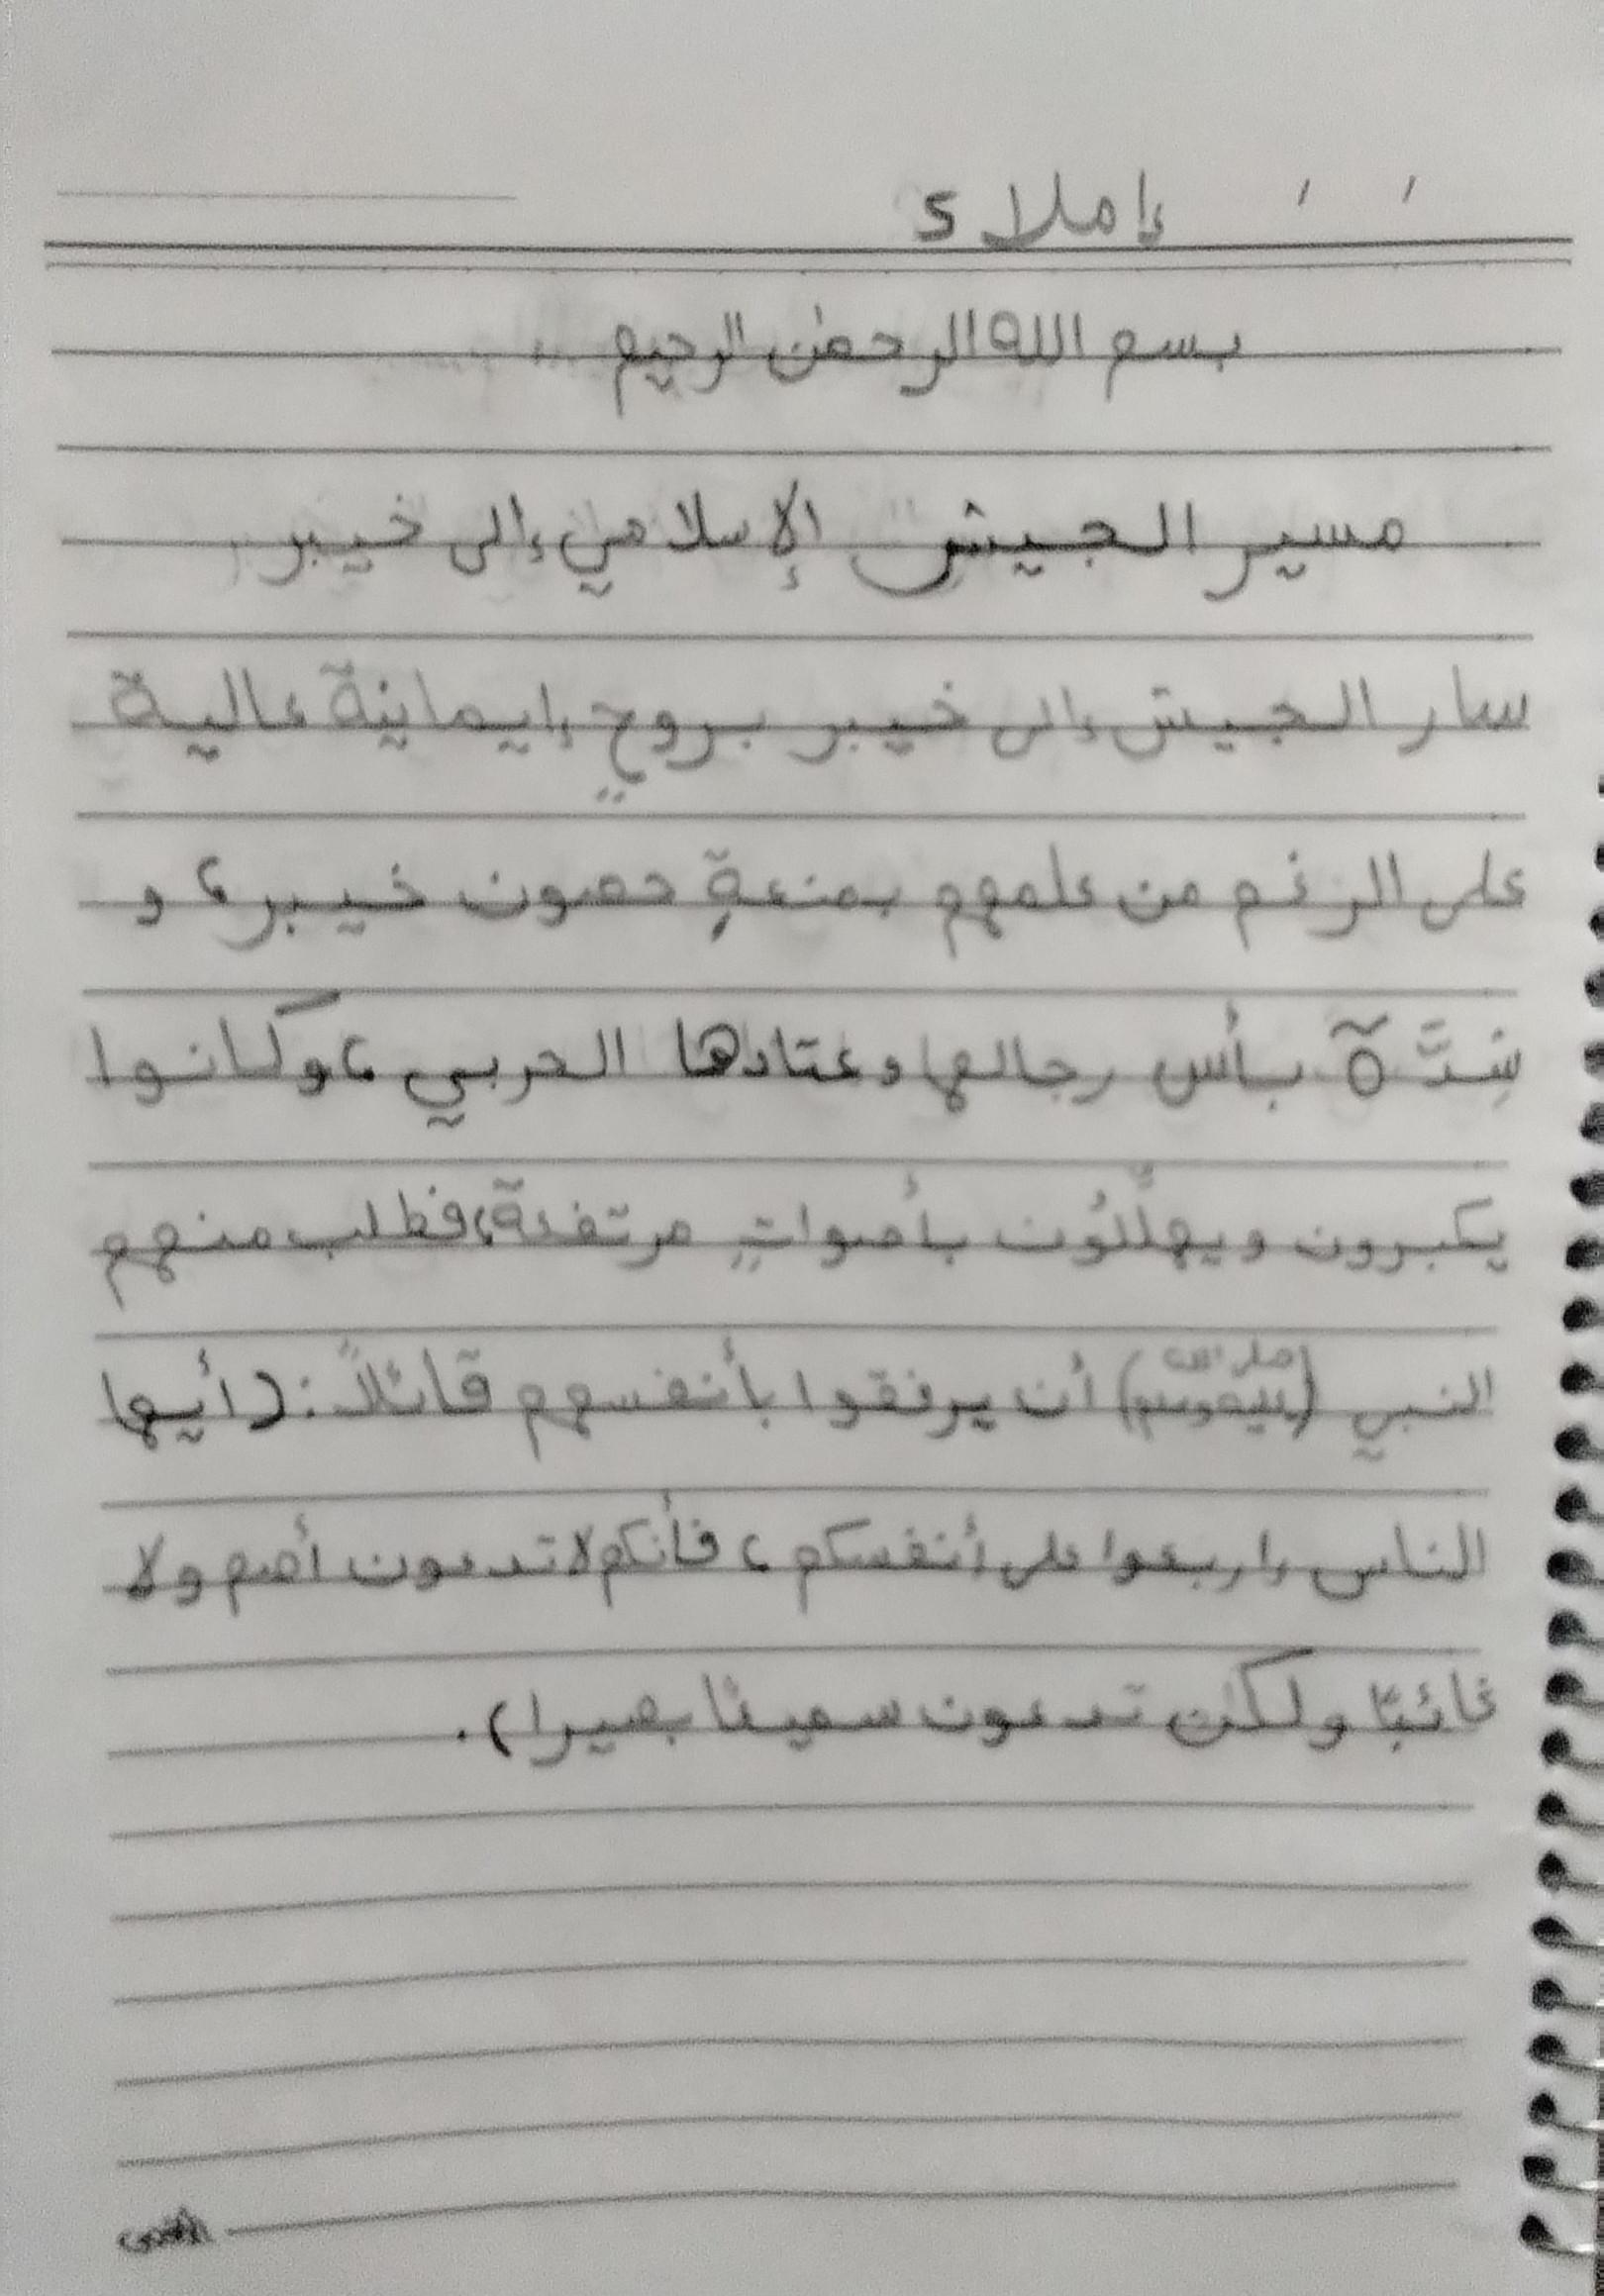 إملاء
بسم الله الرحمٰن الرحيم
مسير الجيش الإسلامي إلى خيبر
سار الجيش إلى خيبر بروحٍ إيمانية عالية
على الرغم من علمهم بمنعةِ حصون خيبر، و
شِدَّة بأس رجالها وعتادها الحربي، وكانوا
يكبرون ويهلِّلُون بأصواتٍ مرتفعة، فطلب منهم
النبي (صلى الله عليه وسلم) أن يرفقوا بأنفسهم قائلاً: (أيها
الناس إربعوا على أنفسكم، فأنكم لا تدعون أصم ولا
غائبًا ولكن تدعون سميعًا بصيرا).